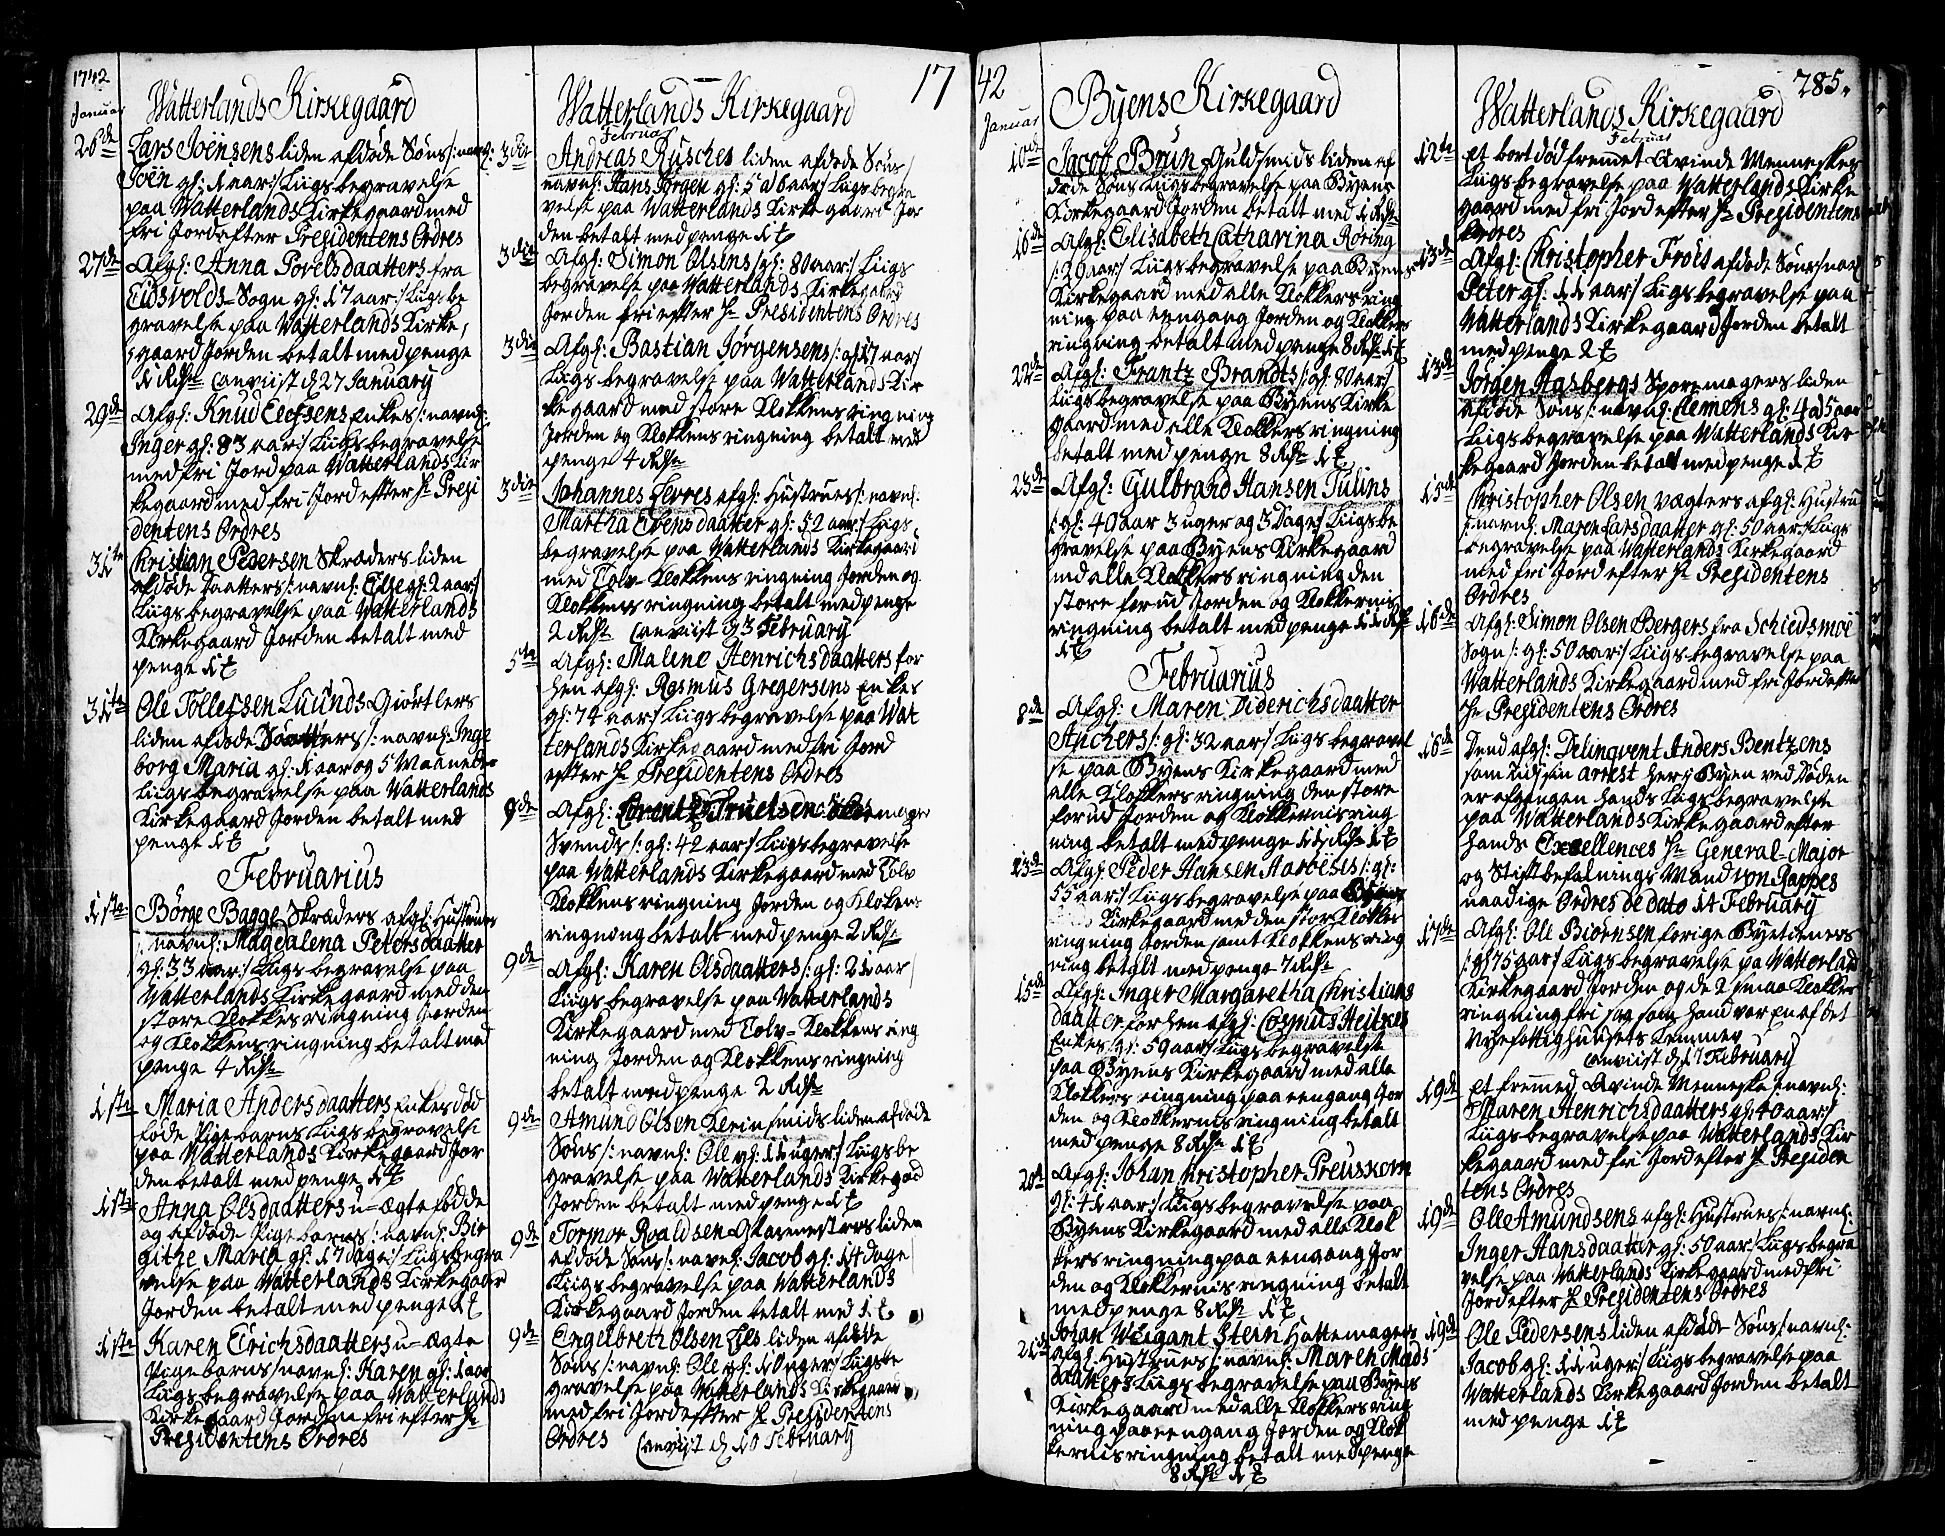 1742
Januar
Watterlands Kirkegaard
26de
Lars Joensens liden afdøde Søns /: navnl:
Joen gl: 1 aar :/ Liigs begravelse
paa Watterlands Kirkegaard med
fri Jord efter Presidentens Ordres
27de
Afgl: Anna Povelsdaatters fra
Eidsvolds Sogn gl: 17 aar :/ Liigs be
gravelse paa Watterlands Kirke,
gaard Jorden betalt med penge
1 Rdr anviist d 27 January
29de
Afgl: Knud Elefsens Enkes /: navnl:
Inger gl: 83 aar :/ Liigs begravelse
med fri Jord paa Watterlands Kir
kegaard med fri Jord efter Hr Presi
dentens Ordres
31te
Christian Pedersen Skræders liden
afdøde Daatters /: navnl: Else gl: 2 aar :/
Liigs begravelse paa Watterlands
Kirkegaard Jorden betalt med
penge 1
31te
Ole Tollefsen Luunds Giørtlers
liden afdøde Daatters /: navnl: Inge
borg Maria gl: 1 aar og 5 Maaneder
Liigs begravelse paa Watterlands
Kirkegaard Jorden betalt med
penge 1
Februarius
1ste
Børge Bagge Skræders afgl: Hustrues
/: navnl: Magdalena Petersdaatter
gl: 33 aar :/ Liigs begravelse paa
Watterlands Kirkegaard med den
store Klokkes ringning Jorden
og Klokkens ringning betalt med
penge 4 Rdr
1ste
Maria Andersdaatters Enkes død
fødde Pige barns Liigs begravelse
paa Watterlands Kirkegaard Jor
den betalt med penge 1
1ste
Anna Olsdaatters u-ægte fødde
og afdøde Pige barns /: navnl: Bir
githe Maria gl: 17 dage :/ Liigs begra
velse paa Watterlands Kirkegaard
Jorden betalt med penge 1
1ste
Karen Erichsdaatters u-ægte
Pige barns /: navnl: Karen gl: 1 aar
Liigs begravelse paa Watterlands
Kirkegaard Jorden fri efter Hr
Presidentens Ordres
17
Watterlands Kirkegaard
Februar
3die
Andreas Rusches liden afdøde Søns /
navnl: Hans Jørgen gl: 5 a 6 aar :/ Liigs begra
velse paa Watterlands Kirkegaard Jor
den betalt med penge 1
3die
Afgl: Simon Olsens /: gl: 80 aar :/ Liigs
begravelse paa Watterlands Kirkegaard
Jorden fri efter Hr Presidentens Ordres
3die
Afgl: Bastian Jørgensens /: gl: 17 aar /
Liigs begravelse paa Watterlands Kir
kegaard med store Klokkens ringning
Jorden og Klokkens ringning betalt med
penge 4 Rdr
3die
Johannes Levres afgl: Hustrues /: navnl:
Martha Evensdaatter gl: 52 aar :/ Liigs
begravelse paa Watterlands Kirkegaard
med Tolv Klokkens ringning Jorden og
Klokkens ringning betalt med penge
2 Rdr anviist d 3 February
5te
Afgl: Malene Henrichsdaatters for
hen afgl: Rasmus Gregersens Enkes
gl: 74 aar :/ Liigs begravelse paa Wat
terlands Kirkegaard med fri Jord
efter Hr Presidentens Ordres
9de
Afgl: Lorentz Truelsen mager
Svends /: gl: 42 aar :/ Liigs begravelse
paa Watterlands Kirkegaard med Tolv
Klokkens ringning Jorden og Klokkens
ringning betalt med penge 2 Rdr
9de
Afgl: Karen Olsdaatters /: gl: 21 aar /
Liigs begravelse paa Watterlands
Kirkegaard med Tolv-Klokkens ring
ning Jorden og Klokkens ringning
betalt med penge 2 Rdr
9de
Amund Olsen Kleinsmids liden afdøde
Søns /: navnl: Ole gl: 11 uger :/ Liigs be
gravelse paa Watterlands Kirkegaard
Jorden betalt med penge 1
9de
Tormor Roaldsen Glasmesters liden
afdøde Søns /: navnl: Jacob gl: 14 dage /
Liigs begravelse paa Watterlands
Kirkegaard Jorden betalt med 1
9de
Engelbreth Olsen Lies liden afdøde
Søns /: navnl: Ole gl: 10 uger :/ Liigs be
gravelse paa Watterlands Kirkegaard
med fri Jord efter Hr Presidentens
Ordres anviist d 10 February
42
Januar
Byens Kirkegaard
10de
Jacob Brun Guldsmids liden af
døde Søns Liigs begravelse paa Byens
Kirkegaard Jorden betalt med 1 Rdr
16de
Afgl: Elisabeth Catharina Røring
/: 20 aar :/ Liigs begravelse paa Byens
Kirkegaard med alle Klokkers ring
ning paa een gang Jorden og Klokkers
ringning betalt med penge 8 Rdr 1
22de
Afgl: Frantz Brandts /: gl: 80 aar :/
Liigs begravelse paa Byens Kirke
gaard med alle Klokkers ringning
betalt med penge 8 Rdr 1
23de
Afgl: Gulbrand Hansen Tulins
/: gl: 40 aar 3 uger og 3 Dage :/ Liigs be
gravelse paa Byens Kirkegaard
med alle Klokkers ringning den
store forud Jorden og Klokkernis
ringning betalt med penge 11 Rdr
1
Februarius
8de
Afgl: Maren Diderichsdaatter
Anchers /: gl: 32 aar :/ Liigs begravel
se paa Byens Kirkegaard med
alle Klokkers ringning den store
forud Jorden og Klokkernis ring
ning betalt med penge 11 Rdr 1
13de
Afgl: Peder Hansen Aarbeses /: gl:
55 aar :/ Liigs begravelse paa Byens
Kirkegaard med den store Klokkes
ringning Jorden samt Klokkens ring
ning betalt med penge 7 Rdr
15de
Afgl: Inger Margaretha Christians
daatter forhen afgl: Cosmus Heitkes
Enkes /: gl: 59 aar :/ Liigs begravelse
paa Byens Kirkegaard med alle
Klokkers ringning paa een gang Jor
den og Klokkernis ringning betalt
med penge 8 Rdr 1
20de
Afgl: Johan Christopher Preuskorn
gl: 41 aar :/ Liigs begravelse paa
Byens Kirkegaard med alle Klok
kers ringning paa een gang Jor
den og Klokkernis ringning betalt
med penge 8 Rdr 1
21de
Johan Weigant Stern Hattemagers
afgl: Hustrues /: navnl: Maren Mads
daatters Liigs begravelse paa Byens
Kirkegaard med alle Klokkers ring
ning paa een gang Jorden og Klok
kernis ringning betalt med penge
8 Rdr 1
785.
Watterlands Kirkegaard
Februar
12te
Et bort død fremmet Qvinde Menneskes
Liigs begravelse paa Watterlands Kirke
gaard med fri Jord efter Hr Presidentens
Ordres
13de
Afgl: Christopher Frøis afdøde Søns /: navl
Peter gl: 11 aar :/ Liigs begravelse paa
Watterlands Kirkegaard Jorden betalt
med penge 2
13de
Jørgen Aasbergs Sporemagers liden
afdøde Søns /: navnl: Clemens gl: 4 a 5 aar
Liigs begravelse paa Watterlands Kir
kegaard Jorden betalt med penge 1
15de
Christopher Olsen Vægters afgl: Hustru
/: navnl: Maren Larsdaatter gl: 50 aar :/ Liigs
begravelse paa Watterlands Kirkegaard
med fri Jord efter Hr Presidentens
Ordres
16de
Afgl: Simon Olsen Bergers fra Schiedsmoe
Sogn /: gl: 50 aar :/ Liigs begravelse paa
Watterlands Kirkegaard med fri Jord efter
Hr Presidentens Ordres
16de
Dend afgl: Delinqvent Anders Bentzens
som udi sin arrest her i Byen ved Døden
er afgangen hands Liigs begravelse
paa Watterlands Kirkegaard efter
hands Excellences Hr General-Major
og Stiftbefalnings Mand von Rappes
naadige Ordres de dato 14 February
17de
Afgl: Ole Biørnsen forige Byetieners
/: gl: 75 aar :/ Liigs begravelse paa Watterland
Kirkegaard Jorden og de 2 smaa Klokkers
ringning fri saa som hand var En af det
Nye fattighuusets Lemmer
anviist d 17 February
19de
Et fremmed Qvinde Menneske navnl:
Maren Henrichsdaatters gl: 40 aar /
Liigs begravelse paa Watterlands Kir
kegaard med fri Jord efter Hr Presiden
tens Ordres
19de
Olle Amundsens afgl: Hustrues /: navnl:
Inger Hansdaatter gl: 50 aar :/ Liigs begra
velse paa Watterlands Kirkegaard med fri
Jord efter Hr Presidentens Ordres
19de
Ole Pedersens liden afdøde Søns /: navnl:
Jacob gl: 11 uger :/ Liigs begravelse paa
Watterlands Kirkegaard Jorden betalt
med penge 1